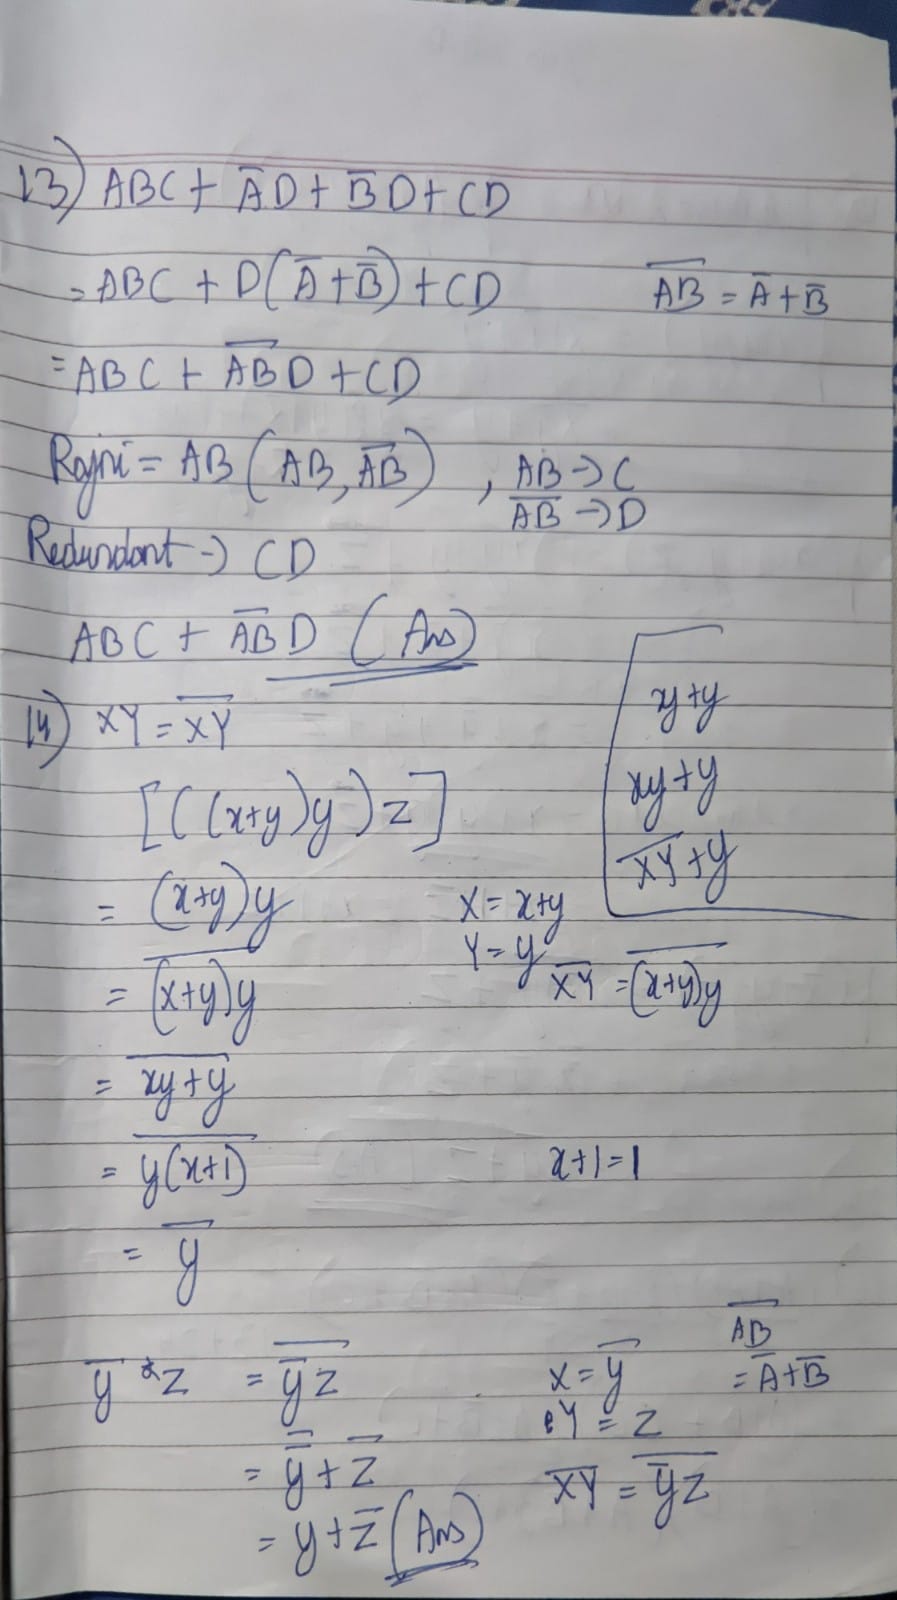 13) ABC + A̅D + B̅D + CD
= ABC + D(A̅ + B̅) + CD
A̅B̅ = A̅ + B̅
= ABC + A̅B̅D + CD
Rajni = AB (AB, A̅B̅) , AB → C
A̅B̅ → D
Redundant → CD
ABC + A̅B̅D (Ans)
14) XY = X̅Y̅
[((x+y)y)z]
xy+y
xy+y
X̅Y̅+y
= (x+y)y
X = x+y
Y = y
= \overline{(x+y)y}
X̅Y̅ = \overline{(x+y)y}
= \overline{xy+y}
= \overline{y(x+1)}
x+1=1
= y̅
y̅ * z = \overline{y̅z}
X = y̅
Y = z
\overline{AB}
= A̅+B̅
= y̿ + z̅
\overline{XY} = \overline{y̅z}
= y + z̅ (Ans)